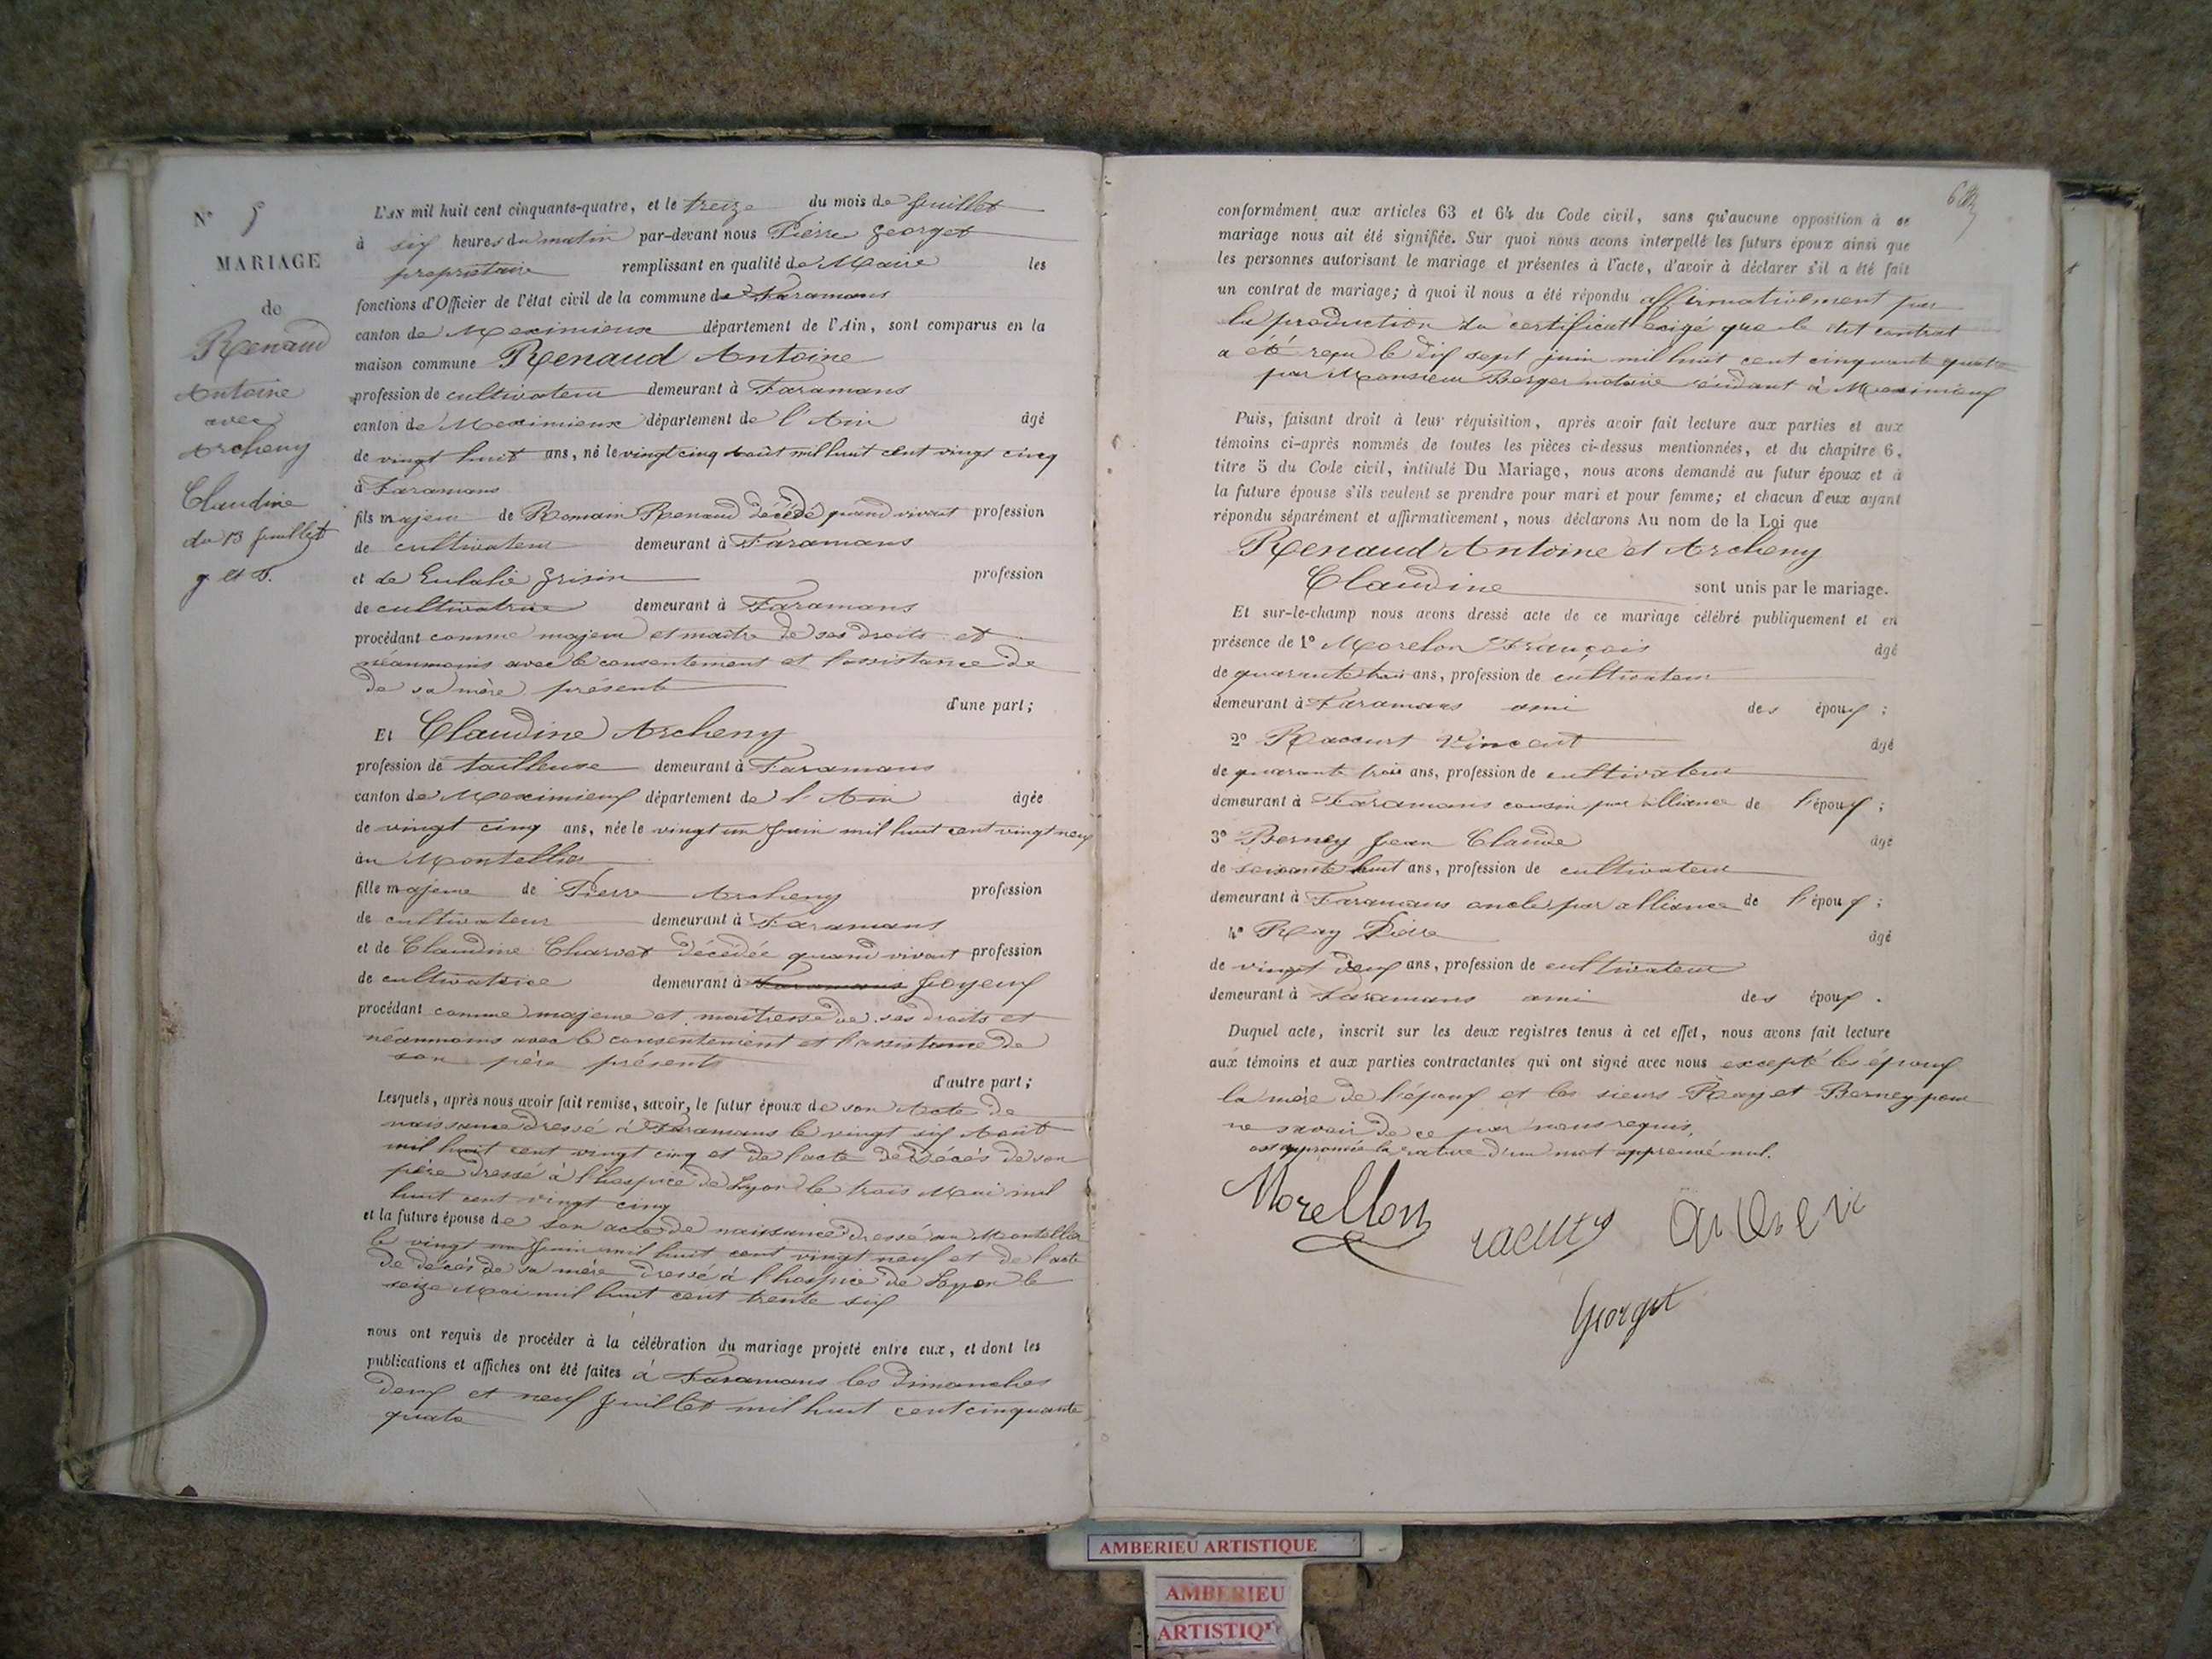 N° 5
MARIAGE
de
Renaud
Antoine
avec
Archeny
Claudine
du 13 Juillet
L'AN mil huit cent cinquante-quatre, et le treize du mois de Juillet
à six heures du matin par-devant nous Pierre Georget
propriétaire remplissant en qualité de Maire les
fonctions d'Officier de l'état civil de la commune de Faramans
canton de Meximieux département de l'Ain, sont comparus en la
maison commune Renaud Antoine
profession de cultivateur demeurant à Faramans
canton de Meximieux département de l'Ain âgé
de vingt huit ans, né le vingt cinq Août mil huit cent vingt cinq
à Faramans
fils majeur de Romain Renaud décédé quand vivait profession
de cultivateur demeurant à Faramans
et de Eulalie Grisin profession
de cultivatrice demeurant à Faramans
procédant comme majeur et maitre de ses droits et
néanmoins avec le consentement et l'assistance de
de sa mère présente
d'une part;
Et Claudine Archeny
profession de tailleuse demeurant à Faramans
canton de Meximieux département de l'Ain âgée
de vingt cinq ans, née le vingt un Juin mil huit cent vingt neuf
au Montellier
fille majeure de Pierre Archeny profession
de cultivateur demeurant à Faramans
et de Claudine Charvet décédée quand vivait profession
de cultivatrice demeurant à Faramans Joyeux
procédant comme majeure et maitresse de ses droits et
néanmoins avec le consentement et l'assistance de
son père présent
d'autre part;
Lesquels, après nous avoir fait remise, savoir, le futur époux de son Acte de
naissance dressé à Faramans le vingt six Août
mil huit cent vingt cinq et de l'acte de décès de son
père dressé à l'hospice de Lyon le trois Mai mil
huit cent vingt cinq
et la future épouse de son acte de naissance dressé au Montellier
le vingt un Juin mil huit cent vingt neuf et de l'acte
de décès de sa mère dressé à l'hospice de Lyon le
seize Mai mil huit cent trente six
nous ont requis de procéder à la célébration du mariage projeté entre eux, et dont les
publications et affiches ont été faites à Faramans les dimanches
deux et neuf Juillet mil huit cent cinquante
quatre
conformément aux articles 63 et 64 du Code civil, sans qu'aucune opposition à ce
mariage nous ait été signifiée. Sur quoi nous avons interpellé les futurs époux ainsi que
les personnes autorisant le mariage et présentes à l'acte, d'avoir à déclarer s'il a été fait
un contrat de mariage; à quoi il nous a été répondu affirmativement par
la production du certificat exigé que le dit contrat
a été reçu le dix sept juin mil huit cent cinquante quatre
par Monsieur Berger notaire résidant à Meximieux
Puis, faisant droit à leur réquisition, après avoir fait lecture aux parties et aux
témoins ci-après nommés de toutes les pièces ci-dessus mentionnées, et du chapitre 6,
titre 5 du Code civil, intitulé Du Mariage, nous avons demandé au futur époux et à
la future épouse s'ils veulent se prendre pour mari et pour femme; et chacun d'eux ayant
répondu séparément et affirmativement, nous déclarons Au nom de la Loi que
Renaud Antoine et Archeny
Claudine sont unis par le mariage.
Et sur-le-champ nous avons dressé acte de ce mariage célébré publiquement et en
présence de 1° Morelon François âgé
de quarante trois ans, profession de cultivateur
demeurant à Faramans ami des époux ;
2° Raccurt Vincent âgé
de quarante trois ans, profession de cultivateur
demeurant à Faramans cousin par alliance de l'époux ;
3° Berney Jean Claude âgé
de soixante huit ans, profession de cultivateur
demeurant à Faramans oncle par alliance de l'époux ;
4° Ray Pierre âgé
de vingt deux ans, profession de cultivateur
demeurant à Faramans ami des époux .
Duquel acte, inscrit sur les deux registres tenus à cet effet, nous avons fait lecture
aux témoins et aux parties contractantes qui ont signé avec nous excepté les époux
la mère de l'époux et les sieurs Ray et Berney pour
ne savoir de ce par nous requis,
la rature d'un mot approuvé nul.
Morellon
Georget
AMBERIEU ARTISTIQUE
AMBERIEU
ARTISTIQ